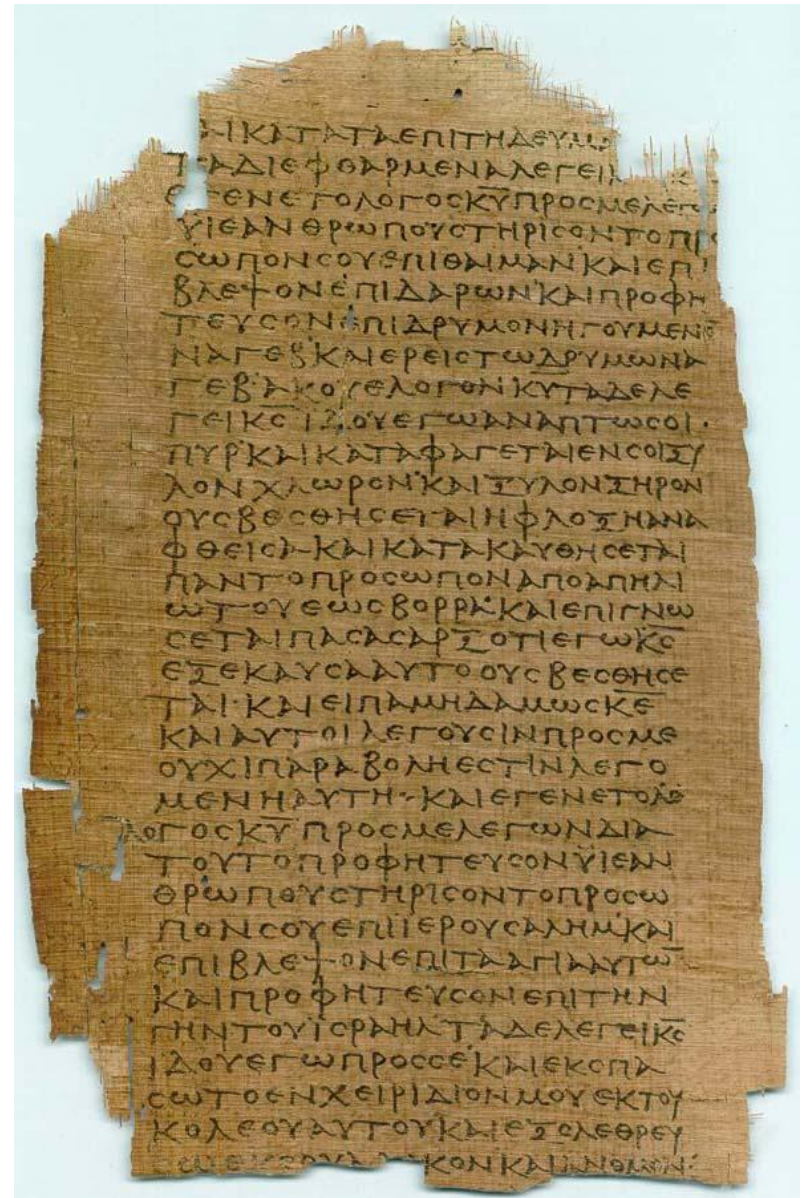 ΑΙΚΑΤΑΤΑΕΠΙΤΗΔΕΥΜ
ΤΑΔΙΕΦΘΑΡΜΕΝΑΛΕΓΕΙ
ΕΓΕΝΕΤΟΛΟΓΟϹΚ̅Υ̅ΠΡΟϹΜΕΛΕΓΩ
ΥΙΕΑΝΘΡΩΠΟΥϹΤΗΡΙϹΟΝΤΟΠΡΟ
ϹΩΠΟΝϹΟΥΕΠΙΘΑΙΜΑΝΚΑΙΕΠΙ
ΒΛΕΨΟΝΕΠΙΔΑΡΩΝΚΑΙΠΡΟΦΗ
ΤΕΥϹΟΝΕΠΙΔΡΥΜΟΝΗΓΟΥΜΕΝΟ
ΝΑΓΕΒΚΑΙΕΡΕΙϹΤΩΔΡΥΜΩΝΑ
ΓΕΒΑΚΟΥΕΛΟΓΟΝΚ̅Υ̅ΤΑΔΕΛΕ
ΓΕΙΚ̅Ϲ̅ΙΔΟΥΕΓΩΑΝΑΠΤΩϹΟΙ
ΠΥΡΚΑΙΚΑΤΑΦΑΓΕΤΑΙΕΝϹΟΙΞΥ
ΛΟΝΧΛΩΡΟΝΚΑΙΞΥΛΟΝΞΗΡΟΝ
ΟΥϹΒΕϹΘΗϹΕΤΑΙΗΦΛΟΞΗΑΝΑ
ΦΘΕΙϹΑΚΑΙΚΑΤΑΚΑΥΘΗϹΕΤΑΙ
ΠΑΝΤΟΠΡΟϹΩΠΟΝΑΠΟΑΠΗΛΙ
ΩΤΟΥΕΩϹΒΟΡΡΑΚΑΙΕΠΙΓΝΩ
ϹΕΤΑΙΠΑϹΑϹΑΡΞΟΤΙΕΓΩΚ̅Ϲ̅
ΕΞΕΚΑΥϹΑΑΥΤΟΟΥϹΒΕϹΘΗϹΕ
ΤΑΙ·ΚΑΙΕΙΠΑΜΗΔΑΜΩϹΚ̅Ε̅
ΚΑΙΑΥΤΟΙΛΕΓΟΥϹΙΝΠΡΟϹΜΕ
ΟΥΧΙΠΑΡΑΒΟΛΗΕϹΤΙΝΛΕΓΟ
ΜΕΝΗΑΥΤΗ·ΚΑΙΕΓΕΝΕΤΟΛΟ
ΛΟΓΟϹΚ̅Υ̅ΠΡΟϹΜΕΛΕΓΩΝΔΙΑ
ΤΟΥΤΟΠΡΟΦΗΤΕΥϹΟΝΫΙΕΑΝ
ΘΡΩΠΟΥϹΤΗΡΙϹΟΝΤΟΠΡΟϹΩ
ΠΟΝϹΟΥΕΠΙΪΕΡΟΥϹΑΛΗΜΚΑΙ
ΕΠΙΒΛΕΨΟΝΕΠΙΤΑΑΓΙΑΑΥΤΩ̅
ΚΑΙΠΡΟΦΗΤΕΥϹΟΝΕΠΙΤΗΝ
ΓΗΝΤΟΥΪϹΡΑΗΛΤΑΔΕΛΕΓΕΙΚ̅Ϲ̅
ΙΔΟΥΕΓΩΠΡΟϹϹΕΚΑΙΕΚϹΠΑ
ϹΩΤΟΕΝΧΕΙΡΙΔΙΟΝΜΟΥΕΚΤΟΥ
ΚΟΛΕΟΥΑΥΤΟΥΚΑΙΕΞΟΛΕΘΡΕΥ
ϹΩΕΚϹΟΥΑΔΙΚΟΝΚΑΙΑΝΟΜΟΝ